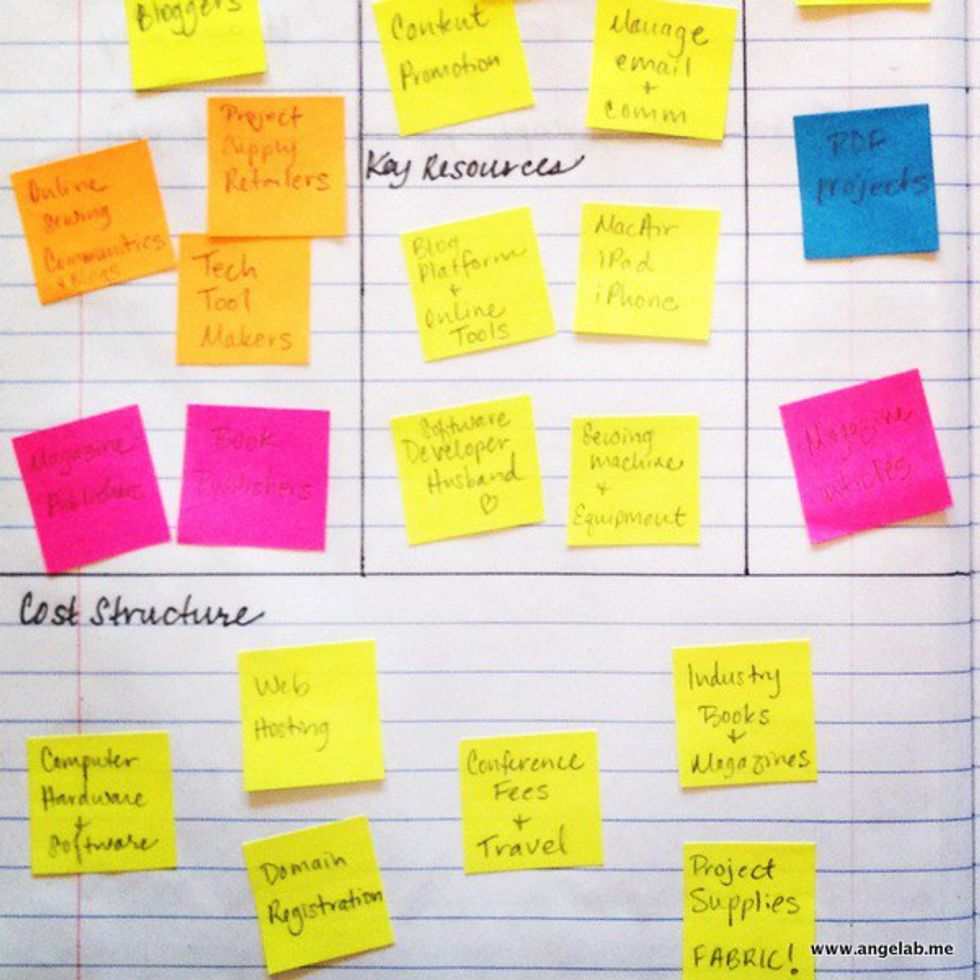 Bloggers
Content
Promotion
Manage
email
+
comm
Project
Supply
Retailers
Online
Sewing
Communities
+ Blogs
Tech
Tool
Makers
Magazine
Publishers
Book
Publishers
Key Resources
Blog
Platform
+
Online
Tools
MacAir
iPad
iPhone
Software
Developer
Husband
♡
Sewing
machine
+
Equipment
PDF
projects
Magazine
articles
Cost Structure
Computer
Hardware
+
Software
Web
Hosting
Domain
Registration
Conference
Fees
+
Travel
Industry
Books
+
Magazines
Project
Supplies
FABRIC!
www.angelab.me